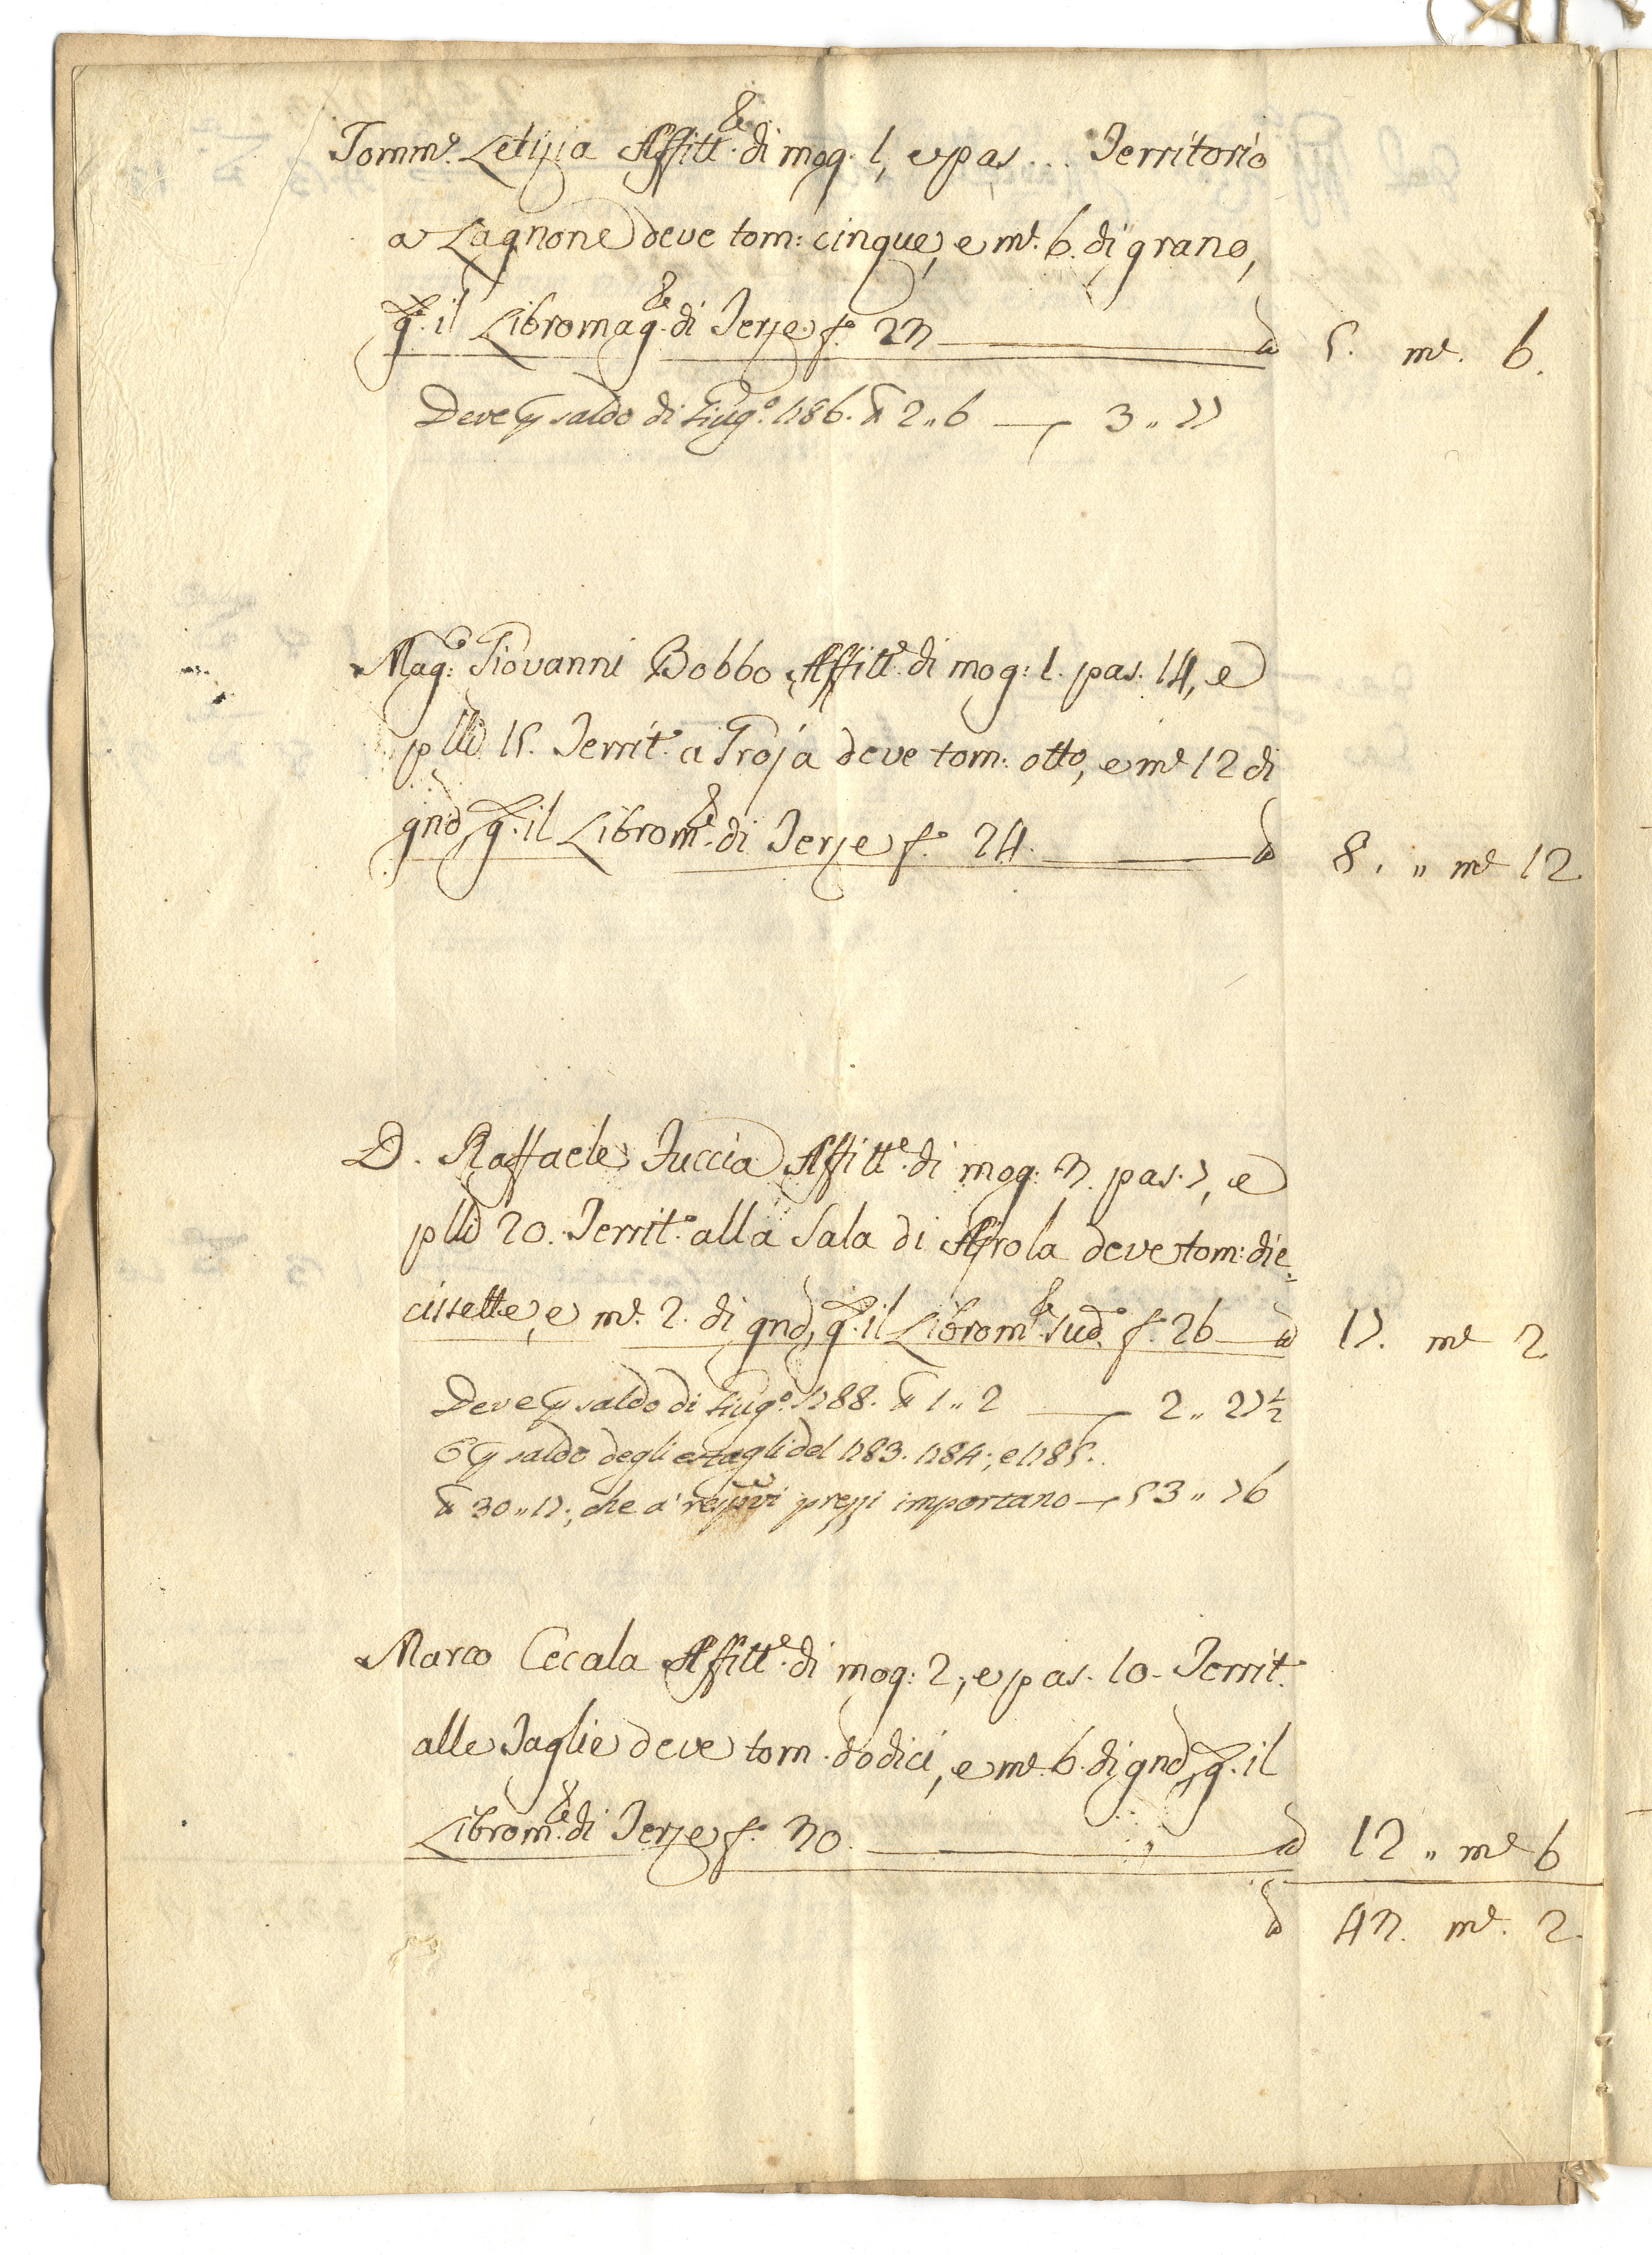 Tomm.o Letizia Affitt.e di mog. 1, e pas... Territorio
a Lagnone deve tom: cinque, e m.e 6. di grano,
q.l il Libro mag.e di Terze f.o 23 5. m.e 6.
Deve p saldo di Giug.o 1786. t.a 2,,6 — 3,,77
Mag.co Giovanni Bobbo Affitt.e di mog: 1. pas. 14, e
plli 15. Territ.o a Troja deve tom: otto, e m.e 12 di
gno, q.l il Libro m.e di Terze f.o 24. 8. ,, m.e 12
D. Raffaele Tuccia Affitt.e di mog: 3. pas. 7, e
plli 20. Territ.o alla Sala di Airola deve tom: die=
cissette, e m.e 2. di gno, q.l il Libro m.e sud.o f.o 26 — 17. m.e 2
Deve p saldo di Giug.o 1788. t.a 1,,2 — 2,,27½
E p saldo degli estagli del 1783. 1784:, e 1785.
t.a 30,,17:, che a' respvi prezzi importano — 53,,76
Marco Cecala Affitt.e di mog: 2:, e pas. 10 - Territ.o
alle Taglie deve tom. dodici, e m.e 6. di gno, q.l il
Libro m.e di Terze f.o 30. 12 ,, m.e 6
43. m.e 2.